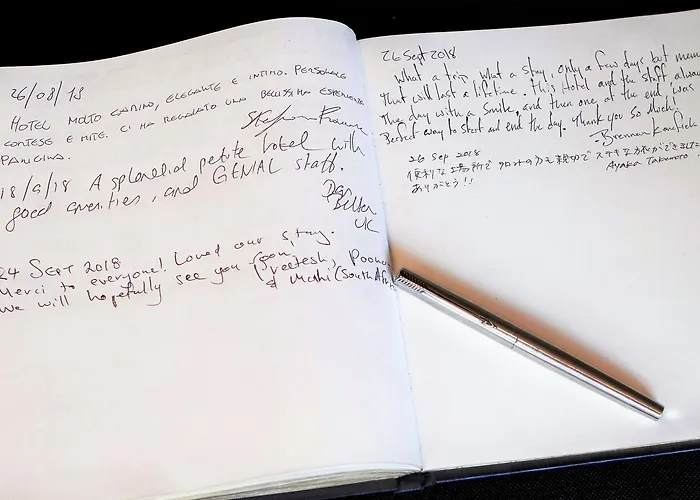 26/08/18
HOTEL MOLTO CARINO, ELEGANTE E INTIMO. PERSONALE
CORTESE E MITE. CI HA REGALATO UNA BELLISSIMA ESPERIENZA
PARIGINA.
18/9/18 A splendid petite hotel with
good amenities, and GENIAL staff.
UK
24 SEPT 2018
Merci to everyone! Loved our stay.
We will hopefully see you soon,
Preetesh,
& Mahi (South Afr
26 Sept 2018
What a trip, what a stay, only a few days but mem
that will last a lifetime. This Hotel and the staff always
the day with a smile, and then one at the end, was
Perfect way to start and end the day. Thank you so much!
-Brennan
26 Sep 2018
便利な場所で フロントの方も親切で ステキな旅ができました
ありがとう!!
Ayaka Takemoto